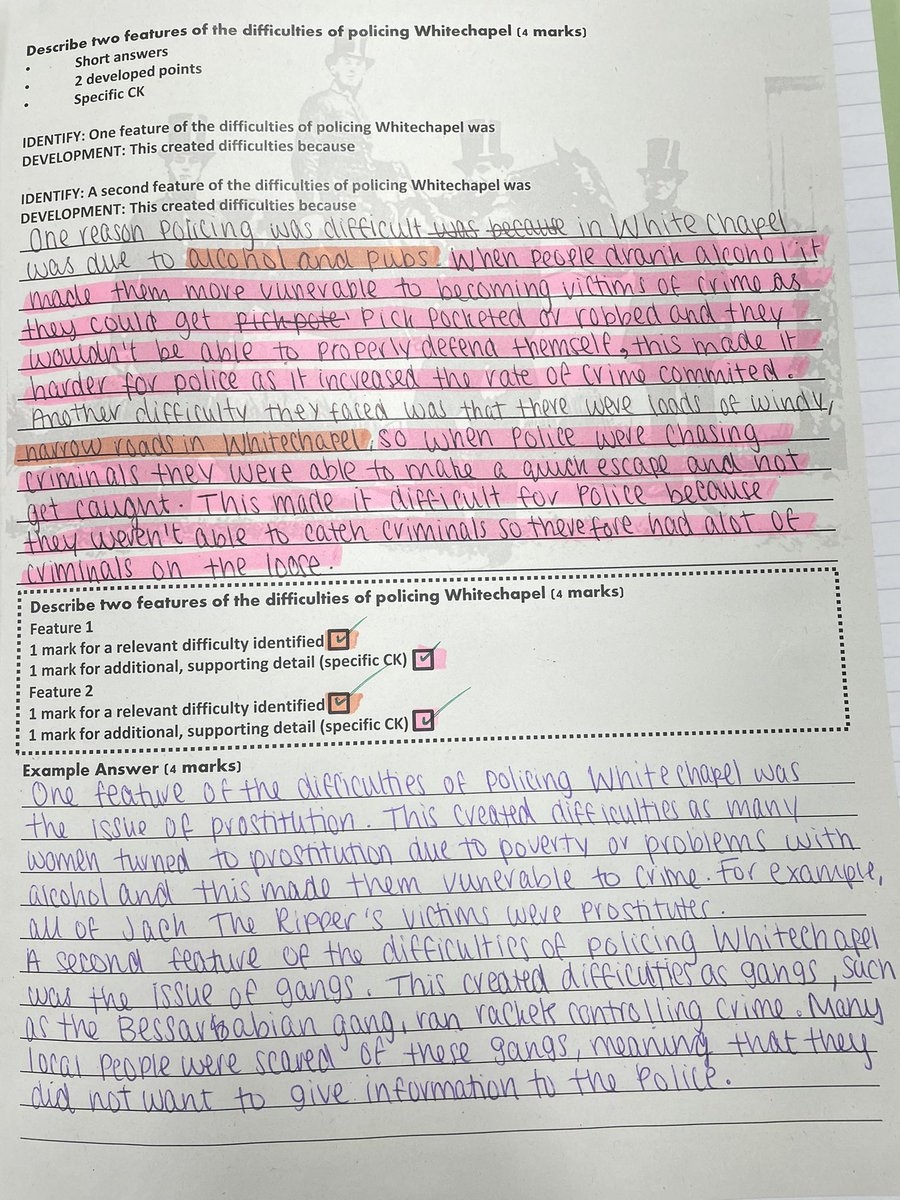 Describe two features of the difficulties of policing Whitechapel (4 marks)
• Short answers
• 2 developed points
• Specific CK
IDENTIFY: One feature of the difficulties of policing Whitechapel was
DEVELOPMENT: This created difficulties because
IDENTIFY: A second feature of the difficulties of policing Whitechapel was
DEVELOPMENT: This created difficulties because
One reason policing was difficult was because in White Chapel
was due to alcohol and pubs. When people drank alcohol it
made them more vunerable to becoming victims of crime as
they could get pickpote' Pick Pocketed or robbed and they
wouldn't be able to properly defend themself, this made it
harder for police as it increased the rate of crime commited.
Another difficulty they faced was that there were loads of windy,
narrow roads in Whitechapel, so when Police were chasing
criminals they were able to make a quick escape and not
get caught. This made it difficult for Police because
they weren't able to catch criminals so therefore had alot of
criminals on the loose.
Describe two features of the difficulties of policing Whitechapel (4 marks)
Feature 1
1 mark for a relevant difficulty identified
1 mark for additional, supporting detail (specific CK)
Feature 2
1 mark for a relevant difficulty identified
1 mark for additional, supporting detail (specific CK)
Example Answer (4 marks)
One feature of the difficulties of policing Whitechapel was
the issue of prostitution. This created difficulties as many
women turned to prostitution due to poverty or problems with
alcohol and this made them vunerable to crime. For example,
all of Jack The Ripper's victims were prostitutes.
A second feature of the difficulties of policing Whitechapel
was the issue of gangs. This created difficulties as gangs, such
as the Bessarabian gang, ran rackets controlling crime. Many
local People were scared of these gangs, meaning that they
did not want to give information to the Police.